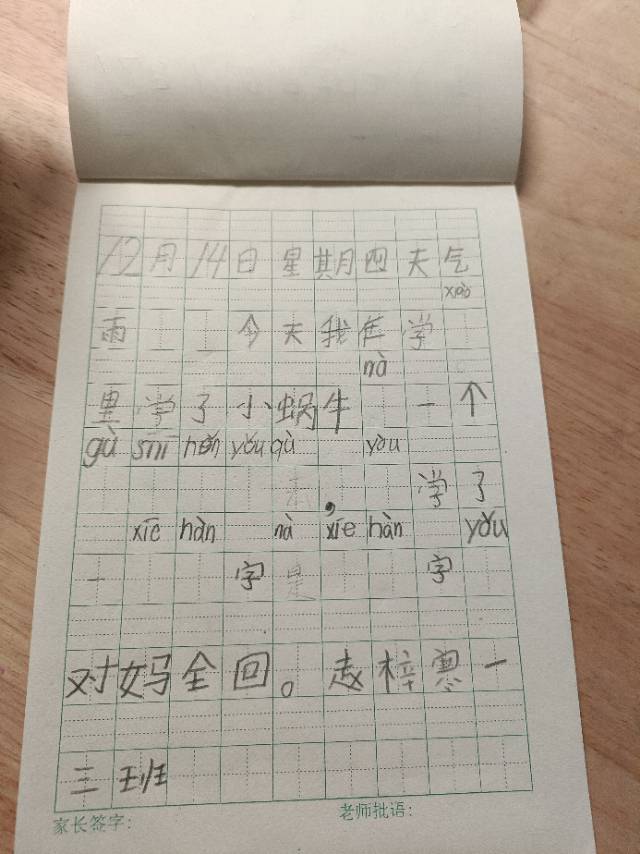 12月14日星期四天气
xiào
雨 今天我在学
nà
里学了小蜗牛 一个
gù shī hěn yǒu qù yòu
来，学了
xiē hàn nà xiē hàn yǒu
一 字是 字
对妈全回。赵梓 一
三班
家长签字： 老师批语：